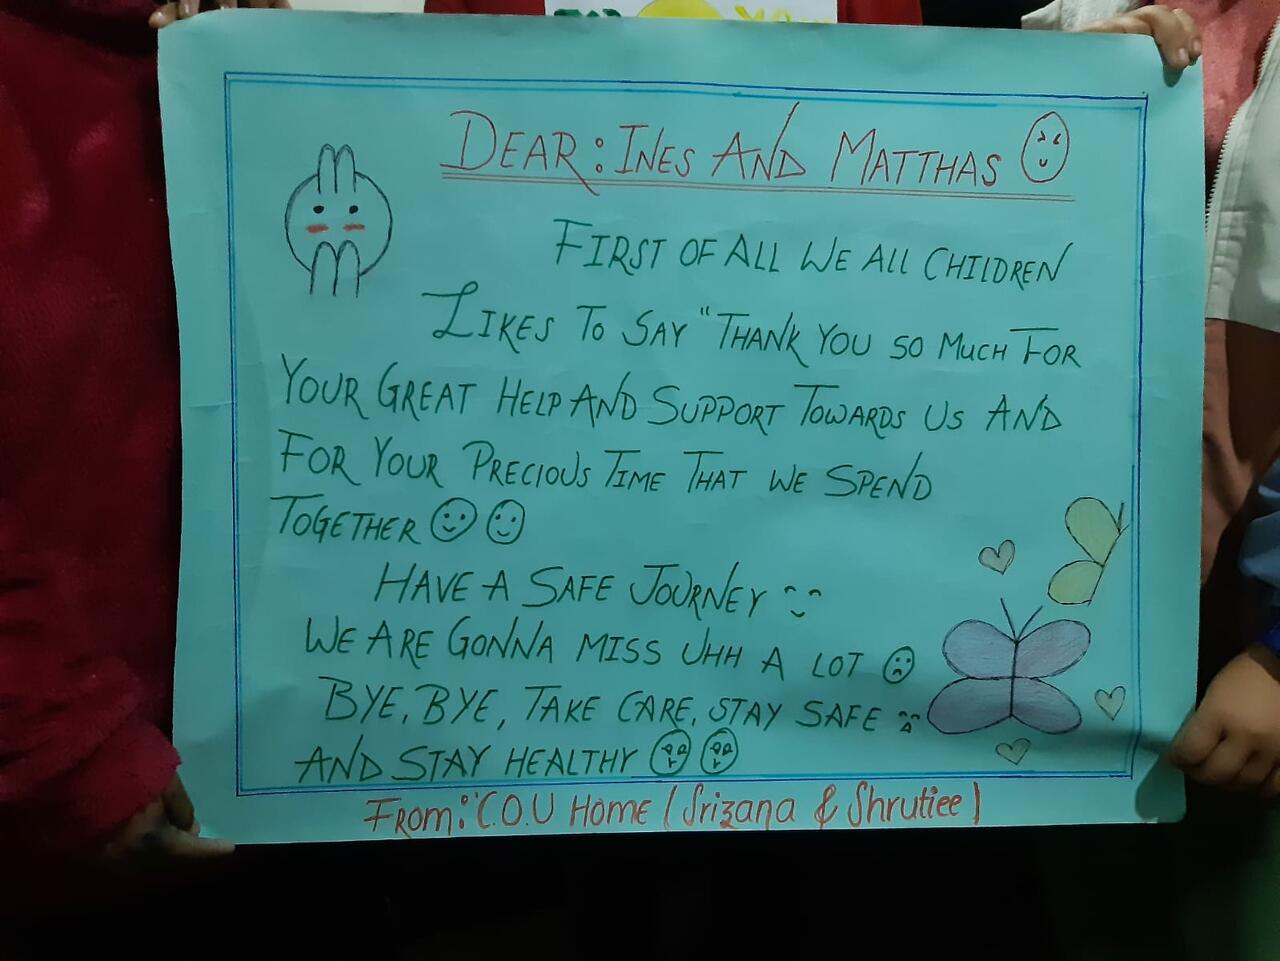 DEAR: INES AND MATTHAS
FIRST OF ALL WE ALL CHILDREN
LIKES TO SAY "THANK YOU SO MUCH FOR
YOUR GREAT HELP AND SUPPORT TOWARDS US AND
FOR YOUR PRECIOUS TIME THAT WE SPEND
TOGETHER
HAVE A SAFE JOURNEY
WE ARE GONNA MISS UHH A LOT
BYE, BYE, TAKE CARE, STAY SAFE
AND STAY HEALTHY
FROM: C.O.U HOME (Srizana & Shrutiee)